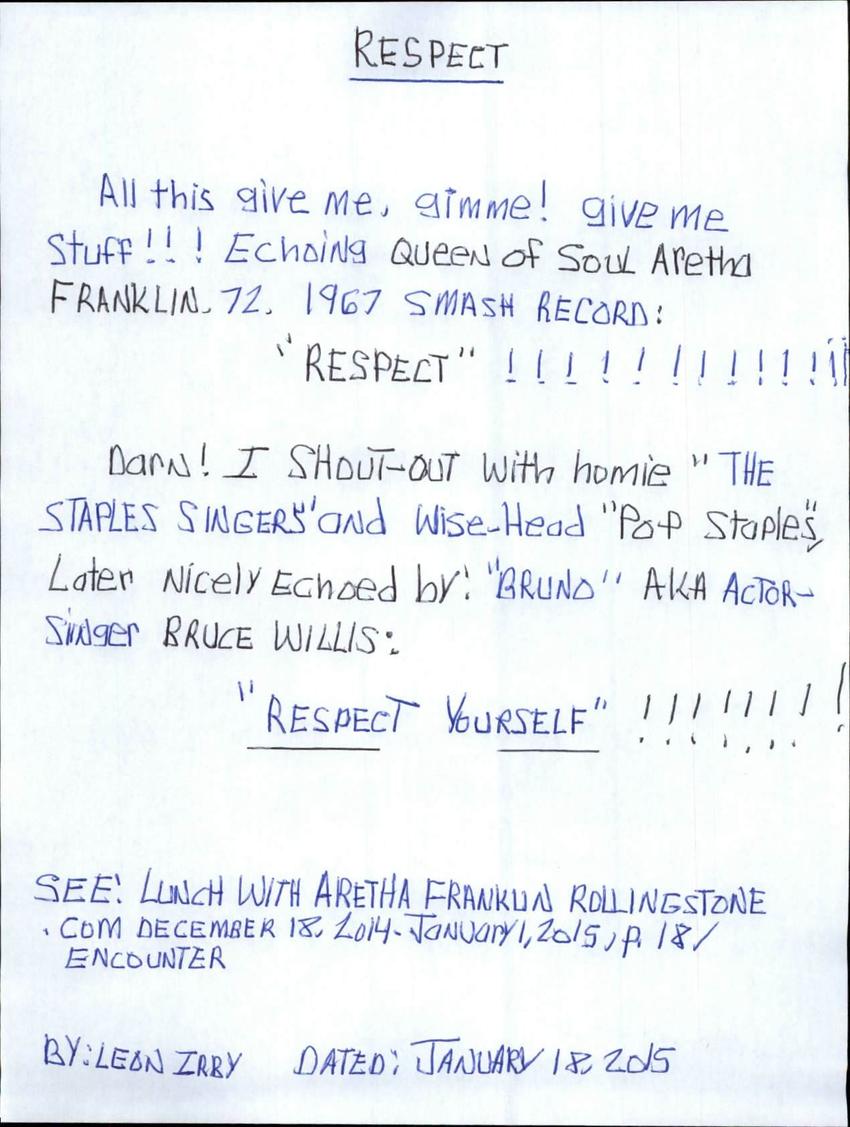 RESPECT
All this give me, gimme! give me
Stuff!!! Echoing Queen of Soul Aretha
FRANKLIN, 72, 1967 SMASH RECORD:
"RESPECT" !!!!!!!!!!!!!
Darn! I SHOUT-OUT with homie "THE
STAPLES SINGERS" and Wise-Head "Pop Staples",
Later Nicely Echoed by: "BRUNO" AKA ACTOR-
Singer BRUCE WILLIS:
"RESPECT YOURSELF" !!!!!!!!
SEE: LUNCH WITH ARETHA FRANKLIN ROLLINGSTONE
.COM DECEMBER 18, 2014-JANUARY 1, 2015, p. 18/
ENCOUNTER
BY: LEON IRBY DATED: JANUARY 18, 2015